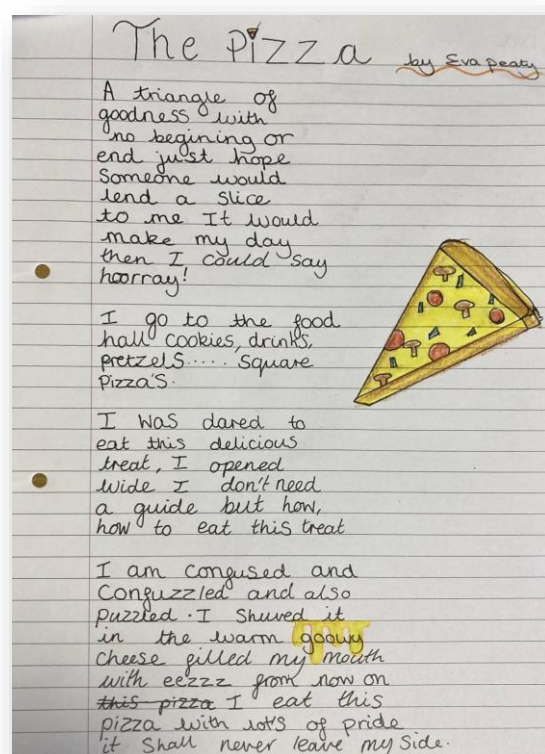 The Pizza
by Eva peaty
A triangle of
goodness with
no begining or
end just hope
Someone would
lend a slice
to me It would
make my day
then I could say
hoorray!
I go to the food
hall cookies, drinks,
pretzels..... square
Pizza's.
I was dared to
eat this delicious
treat, I opened
wide I don't need
a guide but how,
how to eat this treat
I am confused and
Confuzzled and also
puzzled. I shuved it
in the warm goowy
cheese filled my mouth
with eezzz from now on
this pizza I eat this
pizza with lot's of pride
it shall never leave my side.